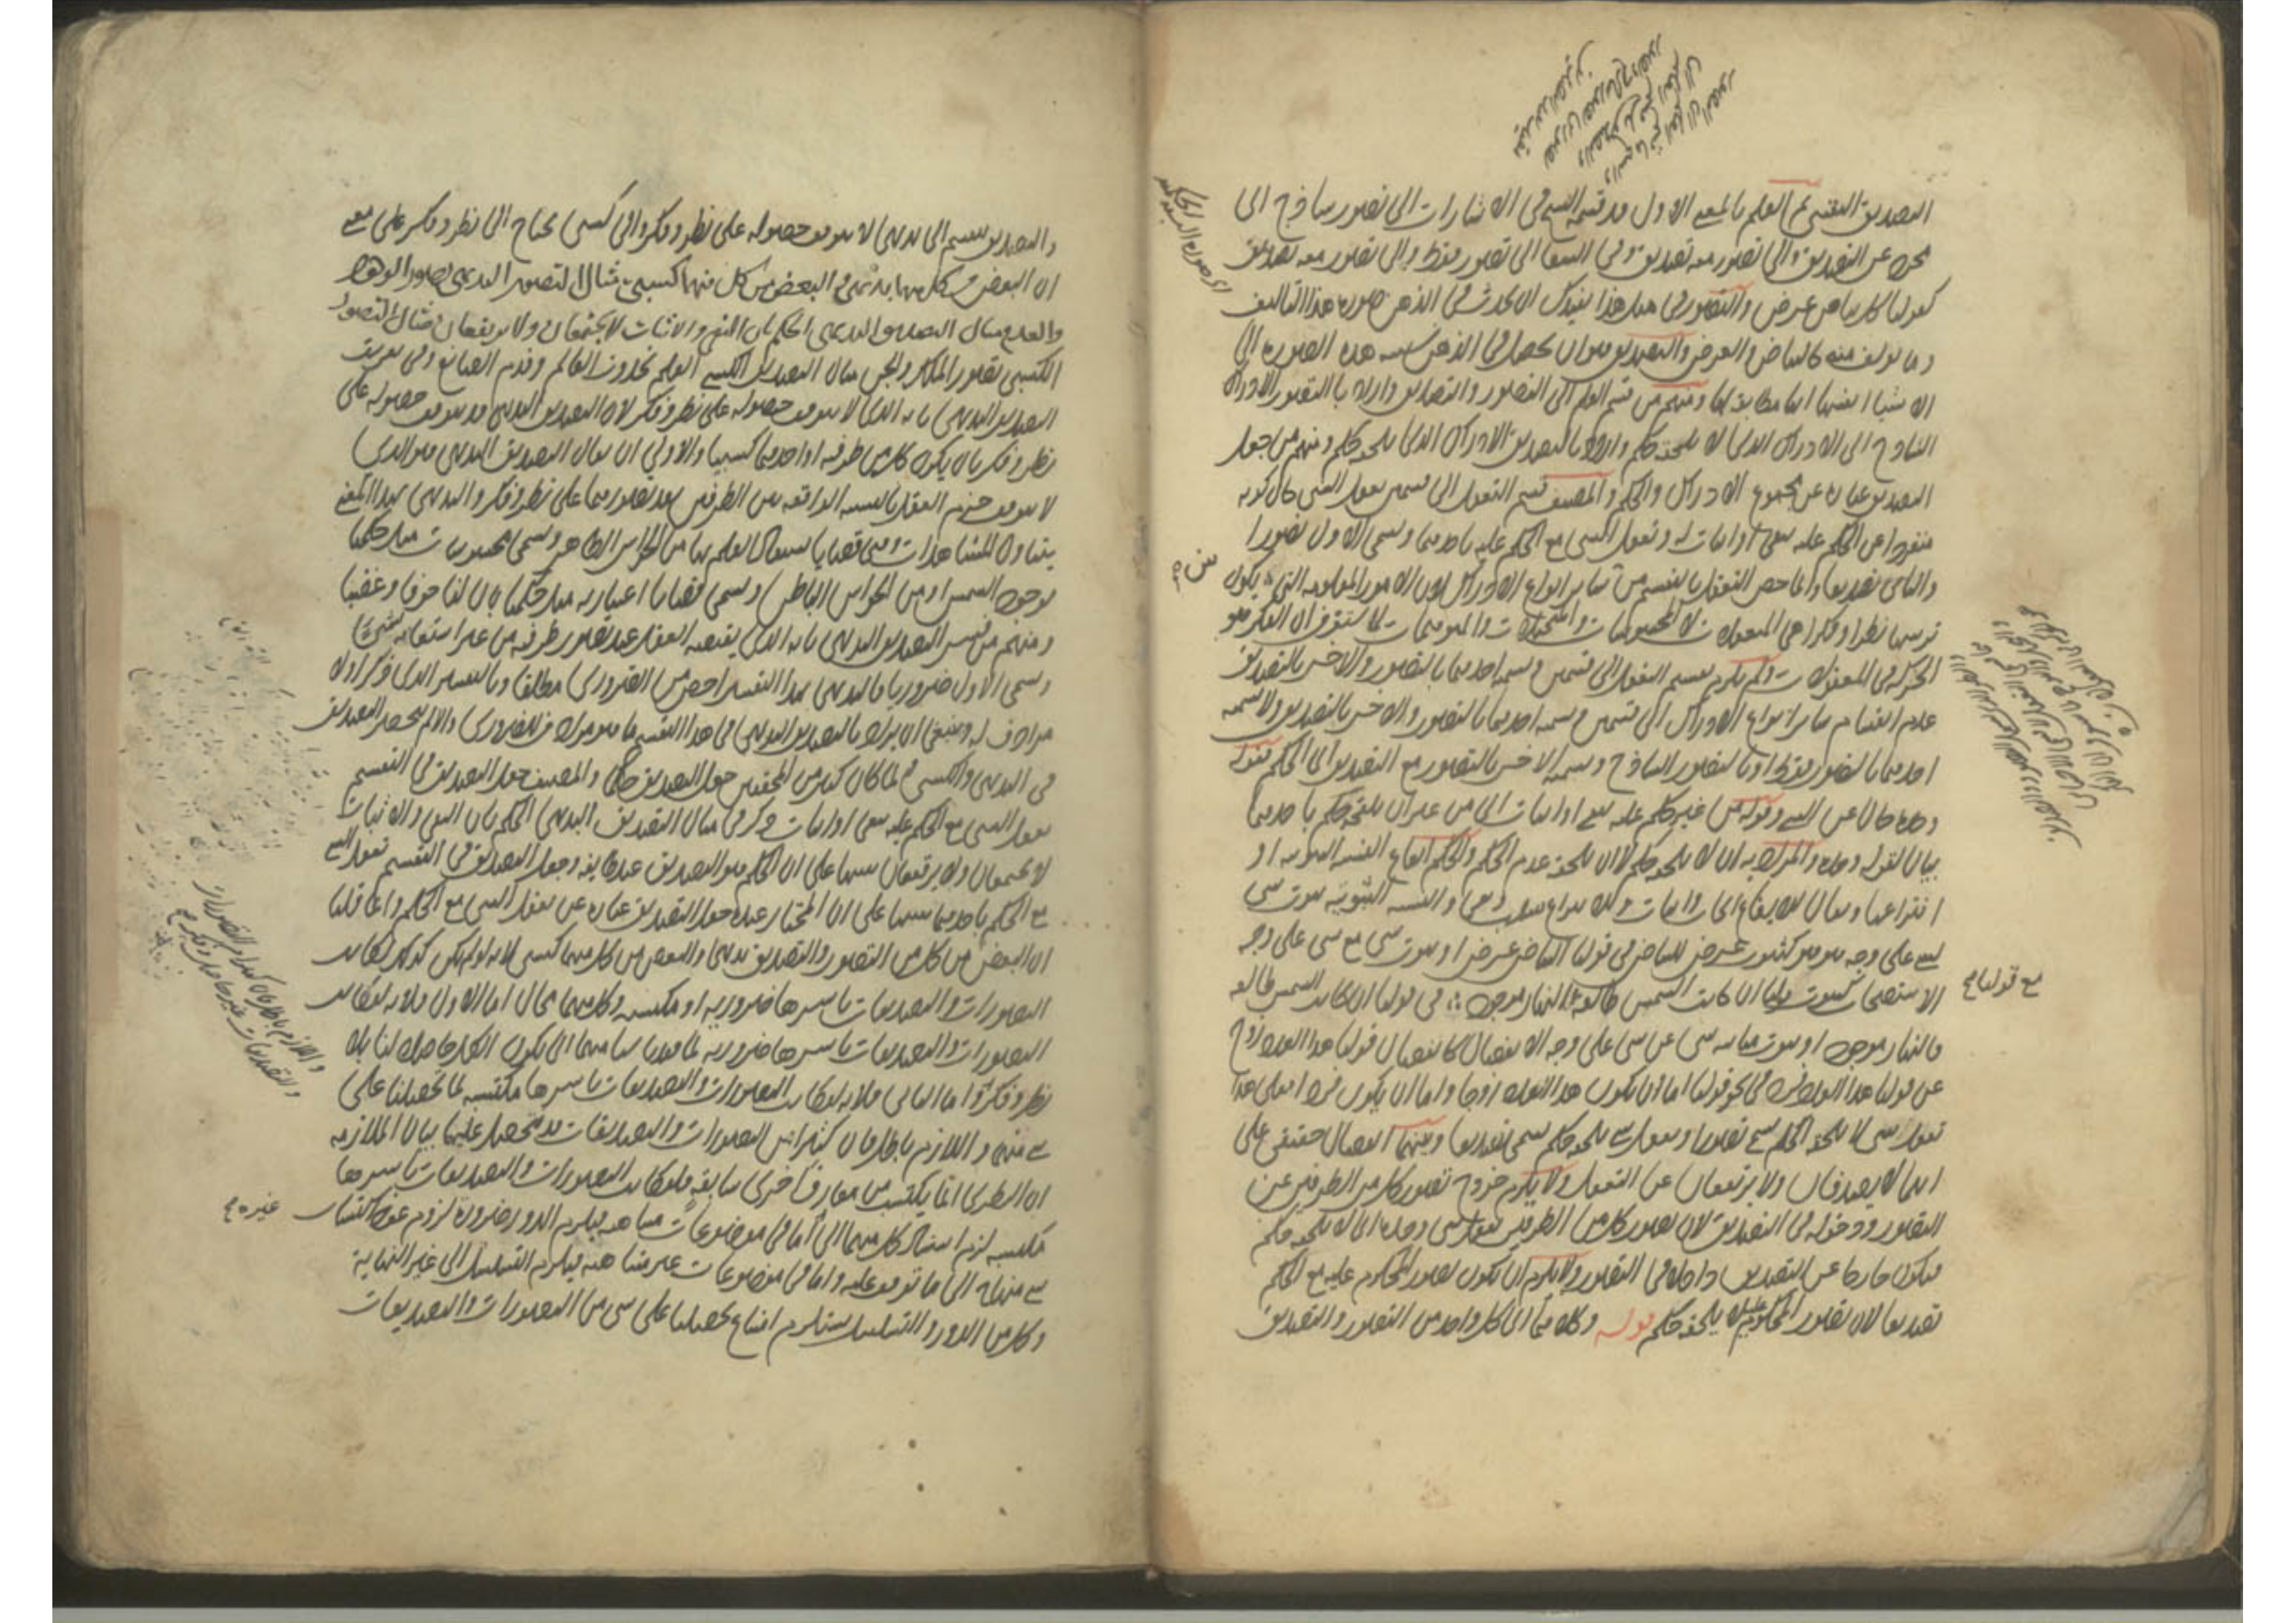 التصديق انقسم العلم بالمعنى الاول وقد قسم الشيخ في الاشارات الى تصور ساذج الى
مجرد عن التصديق والى تصور معه تصديق وفي الشفا الى تصور فقط والى تصور معه تصديق
كقولنا كل بياض عرض والتصور في مثل هذا يفيدك ان يحدث في الذهن صورة هذا التاليف
وما يؤلف منه كالبياض والعرض والتصديق هو ان يحصل في الذهن نسبة هذه الصورة الى
الاشياء انفسها انها مطابقة لها ومنهم من قسم العلم الى التصور والتصديق واراد بالتصور الادراك
الساذج اى الادراك الذي لا يلحقه حكم واراد بالتصديق الادراك الذي يلحقه حكم ومنهم من جعل
التصديق عبارة عن مجموع الادراك والحكم والمصنف قسم التعقل الى قسمين تعقل الشي حال كونه
منفردا عن الحكم عليه بنفي او اثبات له وتعقل الشي مع الحكم عليه باحدهما وسمى الاول تصورا
والثاني تصديقا وانما خص التعقل بالتقسيم من سائر انواع الادراك لان الامور المعلومة التي يكون
ترتيبها نظرا وفكرا هي المعقولات لا المحسوسات والمتخيلات والموهومات لما ستعرف ان الفكر هو
الحركة في المعقولات ولم يلزم من تقسيم التعقل الى قسمين وتسمية احدهما بالتصور والاخر بالتصديق
عدم انقسام سائر انواع الادراك الى قسمين وتسمية احدهما بالتصور والاخر بالتصديق ولا تسمية
احدهما بالتصور فقط او بالتصور الساذج وتسمية الاخر بالتصور مع التصديق اى الحكم فقوله
وحده حال عن الشي وقوله من غير حكم عليه بنفي او اثبات اى من غير ان يلحقه حكم باحدهما
بيان لقوله وحده والمراد به ان لا يلحقه حكم لا ان يلحقه عدم الحكم والحكم ايقاع النسبة الثبوتية او
انتزاعها ويقال للايقاع ايجاب واثبات وللانتزاع سلب ونفي والنسبة الثبوتية ثبوت شي
لشي على وجه هو هو كثبوت عرض للبياض في قولنا البياض عرض او ثبوت شي مع شي على وجه
الاستصحاب كثبوت قولنا ان كانت الشمس طالعة النهار موجود في قولنا ان كانت الشمس طالعة
مع قولنا
فالنهار موجود او ثبوت مباينة شي عن شي على وجه الانفصال كانفصال قولنا هذا العدد زوج
عن قولنا هذا العدد فرد في نحو قولنا اما ان يكون هذا العدد زوجا واما ان يكون فردا فعلى هذا
تعقل شي لا يلحقه الحكم يسمى تصورا وتعقل شي يلحقه حكم يسمى تصديقا وبينهما انفصال حقيقي على
انهما لا يصدقان ولا يرتفعان عن التعقل ولا يلزم خروج تصور كل من الطرفين عن
التصور ودخوله في التصديق لان تصور كل من الطرفين تعقل شي وحده اى لا يلحقه حكم
فيكون خارجا عن التصديق داخلا في التصور ولا يلزم ان يكون تصور المحكوم عليه مع الحكم
تصديقا لان تصور المحكوم عليه لا يلحقه حكم قوله وكل منهما اى كل واحد من التصور والتصديق
والتصديق ينقسم الى بديهي لا يتوقف حصوله على نظر وفكر والى كسبي يحتاج الى نظر وفكر على معنى
ان البعض من كل منهما بديهي والبعض من كل منهما كسبي مثال التصور البديهي تصور الوجود
والعدم ومثال التصديق البديهي الحكم بان النفي والاثبات لا يجتمعان ولا يرتفعان ومثال التصور
الكسبي تصور الملك والجن ومثال التصديق الكسبي العلم بحدوث العالم وقدم الصانع وفي تعريف
التصديق البديهي بانه الذي لا يتوقف حصوله على نظر وفكر لان التصديق البديهي قد يتوقف حصوله على
نظر وفكر بان يكون كل من طرفيه او احدهما كسبيا والاولى ان يقال التصديق البديهي هو الذي
لا يتوقف جزم العقل بالنسبة الواقعة بين الطرفين بعد تصورهما على نظر وفكر والبديهي بهذا المعنى
يتناول المشاهدات وهي قضايا يستفاد العلم بها من الحواس الظاهر وتسمى محسوسات مثل حكمنا
بوجود الشمس او من الحواس الباطن وتسمى قضايا اعتبارية مثل حكمنا بان لنا خوفا وغضبا
ومنهم من فسر التصديق البديهي بانه الذي يقتضيه العقل عند تصور طرفيه من غير استعانة بشي
وسمى الاول ضروريا فالبديهي بهذا التفسير اخص من الضروري مطلقا وبالتفسير الذي ذكر اولا
مرادف له وينبغي ان يراد بالتصديق البديهي في هذا التقسيم ما هو مرادف للضروري والا لم ينحصر التصديق
في البديهي والكسبي ولما كان كثير من المحققين جعل التصديق حكما والمصنف جعل التصديق في التقسيم
تعقل الشي مع الحكم عليه بنفي او اثبات وذكر في مثال التصديق البديهي الحكم بان النفي والاثبات
لا يجتمعان ولا يرتفعان تنبيها على ان الحكم هو التصديق عند طائفة وجعل التصديق في التقسيم تعقل الشي
مع الحكم باحدهما تنبيها على ان المختار عنده جعل التصديق عبارة عن تعقل الشي مع الحكم وانما قلنا
ان البعض من كل من التصور والتصديق بديهي والبعض من كل منهما كسبي لانه لو لم يكن كذلك لكانت
التصورات والتصديقات باسرها ضرورية او مكتسبة وكل منهما محال اما الاول فلانه لو كانت
التصورات والتصديقات باسرها ضرورية لما فقدنا شيئا منهما اى يكون الكل حاصلا لنا بلا
نظر وفكر واما الثاني فلانه لو كانت التصورات والتصديقات باسرها مكتسبة لما تحصلنا على
شي منهما واللازم باطل فان كثيرا من التصورات والتصديقات قد نحصل عليها بيان الملازمة
ان النظري انما يكتسب من معارف اخرى سابقة فلو كانت التصورات والتصديقات باسرها
مكتسبة لزم استناد كل منهما الى اما في موضوعات متناهية فيلزم الدور ضرورة لزوم عود اكتساب
غيره
شي منهما الى ما توقف عليه واما في موضوعات غير متناهية فيلزم التسلسل الى غير النهاية
وكل من الدور والتسلسل يستلزم امتناع تحصلنا على شي من التصورات والتصديقات
واللازم باطل فان كثيرا من التصورات
والتصديقات غير حاصل وفكر